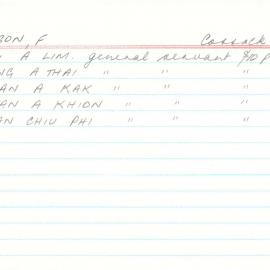 SON, F Cossack
A LIM. general servant $10 P
NG A THAI " " "
AN A KAK " " "
AN A KHION " " "
AN CHIU PHI " " "